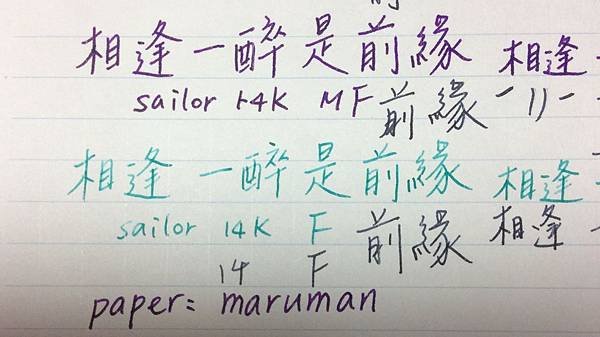 相逢一醉是前緣 相逢
sailor 14K MF 前緣
相逢一醉是前緣 相逢
sailor 14K F 前緣 相逢
14 F
paper: maruman